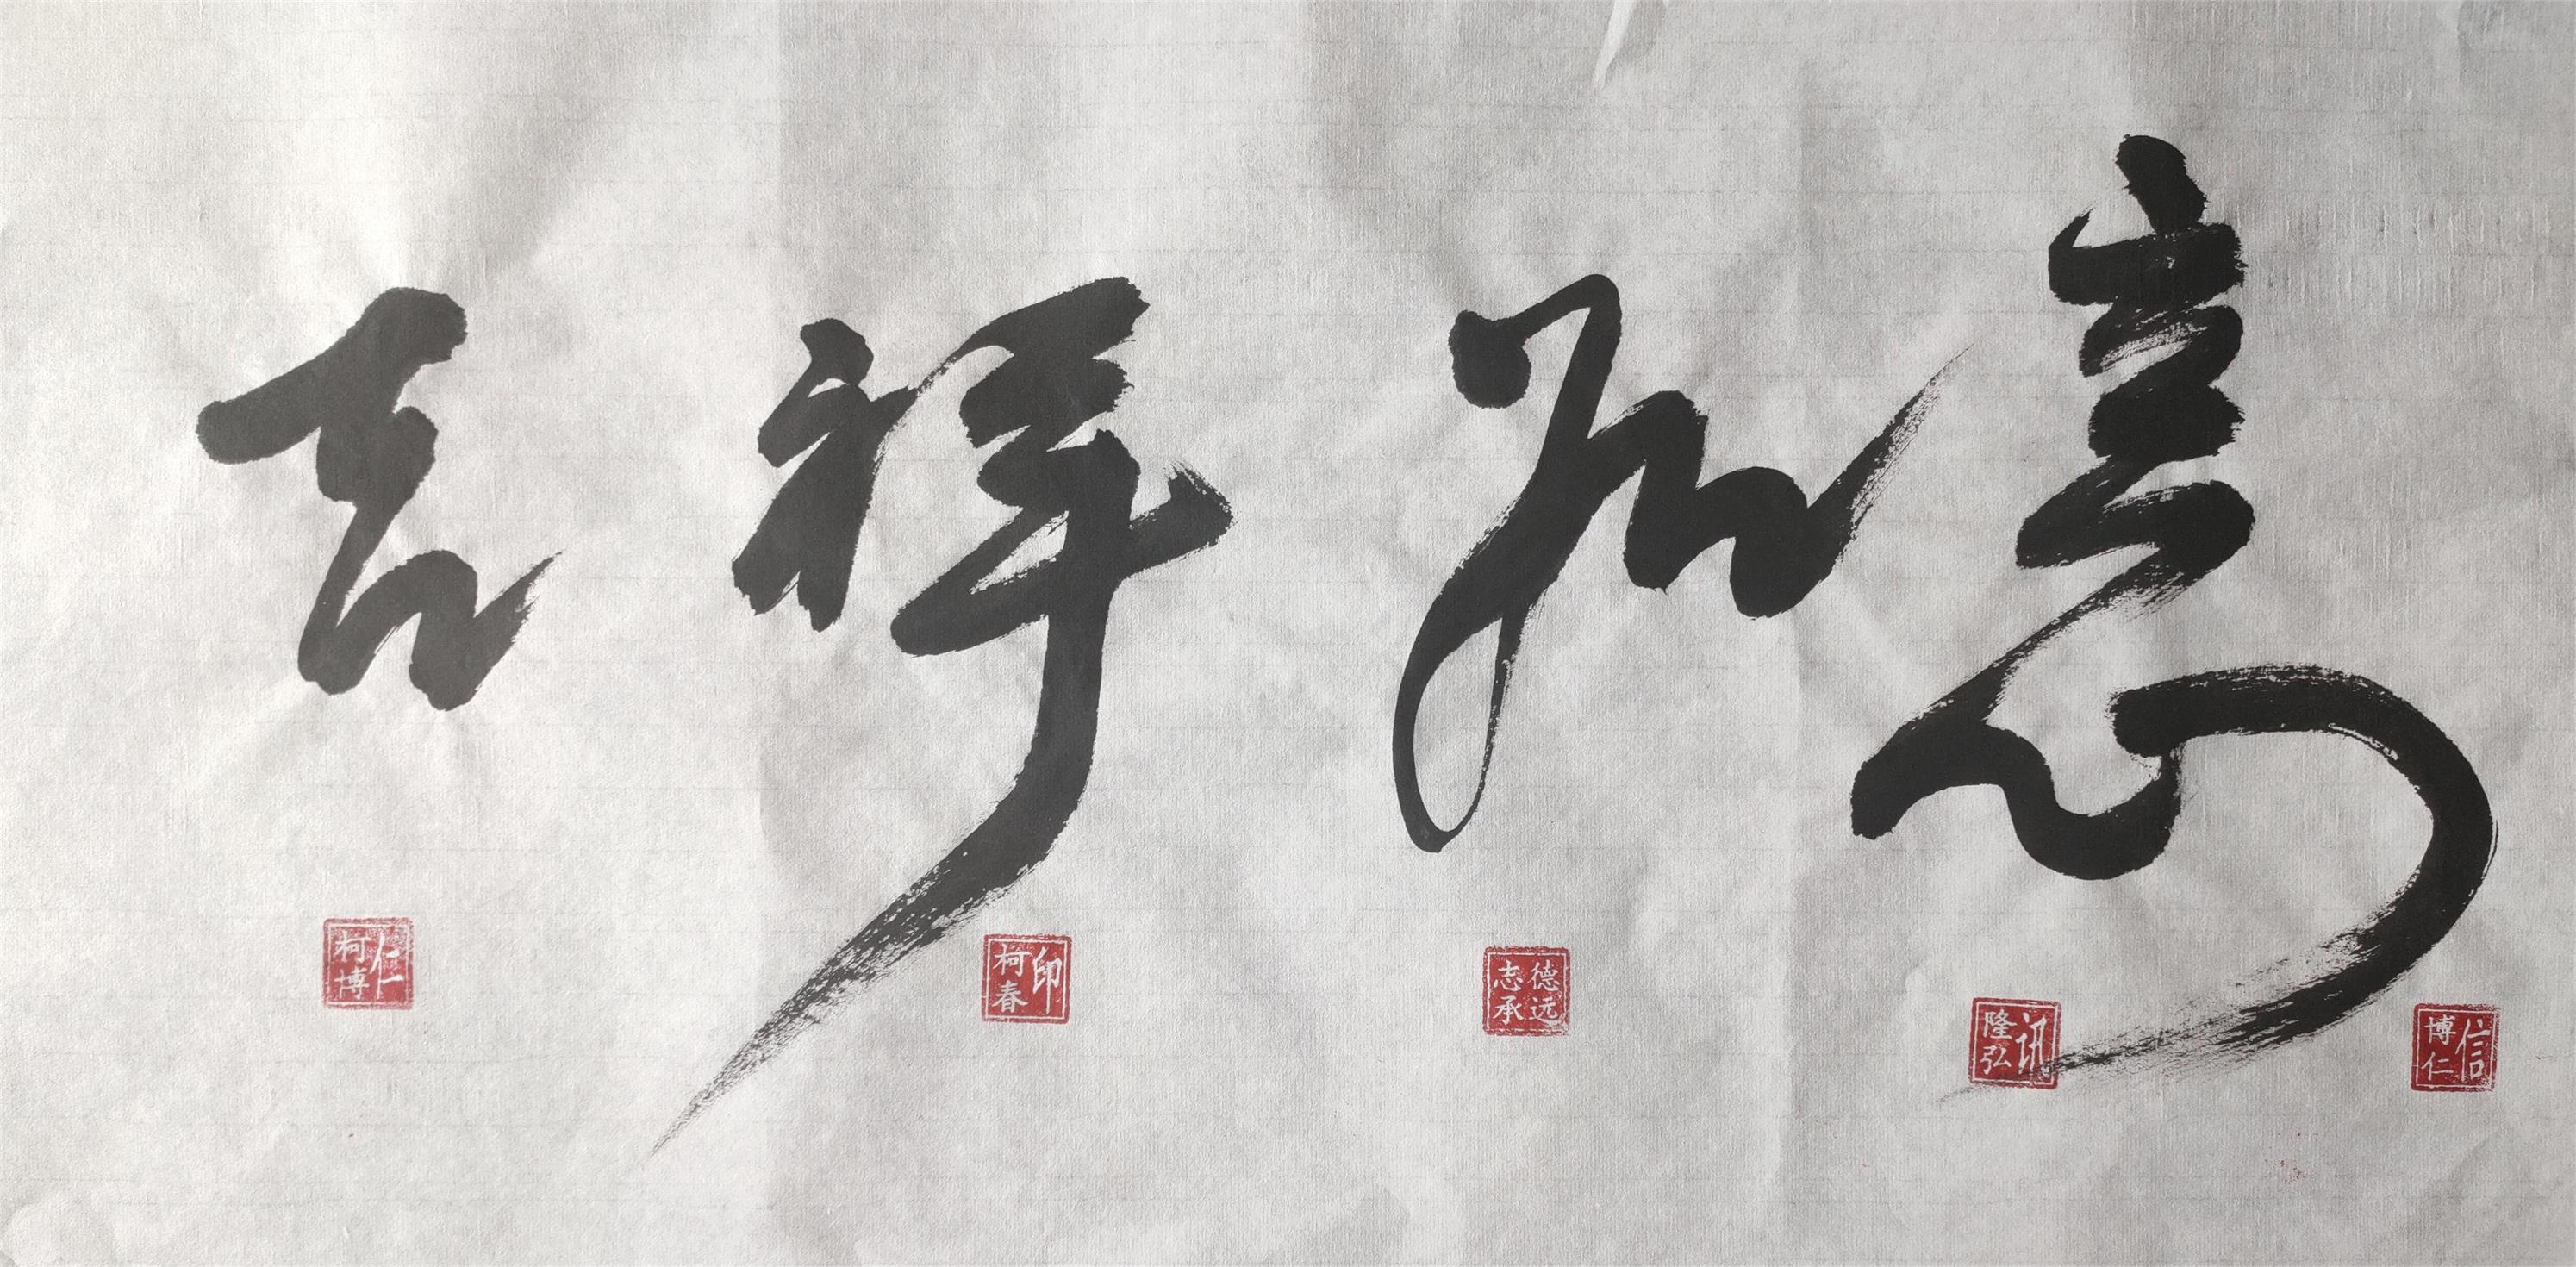 吉祥如意
柯博仁
柯春印
志承德远
隆弘讯
博仁信